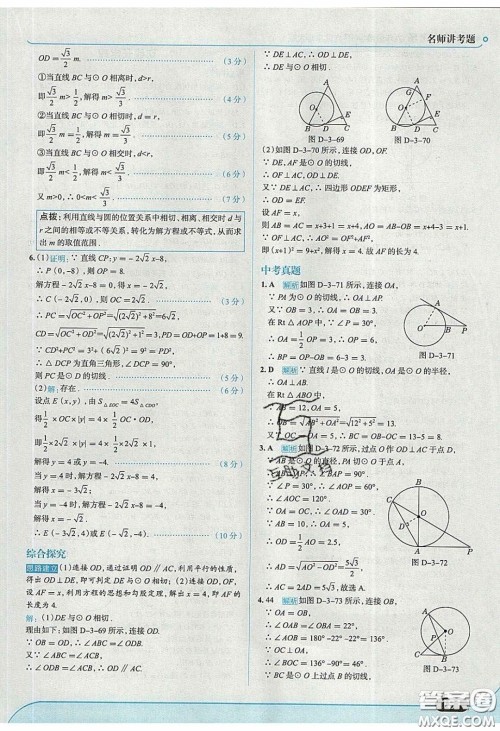 名师讲考题
OD=√3/2 m. (3分)
①当直线BC与⊙O相离时,d>r,
即√3/2 m>1/2,解得m>√3/3. (4分)
②当直线BC与⊙O相切时,d=r,
即√3/2 m=1/2,解得m=√3/3. (5分)
③当直线BC与⊙O相交时,d<r,
即√3/2 m<1/2,解得m<√3/3. (6分)
又m>0,∴0<m<√3/3. (7分)
点拨:利用直线与圆的位置关系中相切、相离、相交时d与
r之间的相等或不等关系,转化为解方程或不等式,从而求
出m的取值范围.
6.(1)证明:∵直线CP:y=-2√2x-8,
∴P(0,-8),则OP=8.
解方程-2√2x-8=0,得x=-2√2,
∴C(-2√2,0),则OC=2√2. (3分)
∴PC=√(OC²+OP²)=√((2√2)²+8²)=6√2,
CD=√(OC²+OD²)=√((2√2)²+1²)=3,PD=OD+OP=1+8=9.
∵CD²+PC²=3²+(6√2)²=9²=PD²,
∴△DCP为直角三角形,∠DCP=90°,
则PC是⊙D的切线. (5分)
(2)解:存在. (6分)
设E(x,y),由S△EOC=4S△CDO,
得1/2×OC×|y|=4×1/2 OC·OD,
即1/2×2√2×|y|=4×1/2×2√2×1,
解得y=4或y=-4. (8分)
当y=4时,解方程-2√2x-8=4,
解得x=-3√2;
当y=-4时,解方程-2√2x-8=-4,
解得x=-√2.
∴E(-3√2,4)或E(-√2,-4). (10分)
综合探究
思路建立 (1)连接OD,通过证明OD∥AC,利用平行的性质,
得出OD⊥DE,即可判定DE与⊙O相切;(2)连接OD,OF,
设AF=x,利用方程的思想和勾股定理,解出x=4,即AF的
长度为4.
解:(1)DE与⊙O相切.
理由如下:如图D-3-69所示,连接OD.
∵OB=OD,∴∠ODB=∠OBD,
又∵∠ABC=∠ACB,
∴∠ODB=∠ACB,∴OD∥AC.
∵DE⊥AC,∴OD⊥DE,
∴DE与⊙O相切.
A
O
E
B D C
图D-3-69
A
G
F
O
E
B D C
图D-3-70
(2)如图D-3-70所示,连接OD,OF.
∵DE,AF是⊙O的切线,
∴OF⊥AC,OD⊥DE.
又∵DE⊥AC,∴四边形ODEF为矩形,
∴OD=EF.
设AF=x,
则AB=AC=x+3+1=x+4,AO=AB-OB=x+4-3=x+1.
∵OF⊥AC,∴AO²=OF²+AF²,
即(x+1)²=9+x²,解得x=4.故AF的长为4.
中考真题
1.A 解析 如图D-3-71所示,连接OA,
∵PA为⊙O的切线,∴OA⊥AP.
又∵OB=3,∴OA=OB=3.
在Rt△AOP中,∵∠P=30°,
∴OA=1/2 OP=3,∴OP=6,
∴BP=OP-OB=6-3=3.
A
O B P
图D-3-71
2.D 解析 ∵直线l是⊙O的切线,OA是⊙O的半径,
∴OA⊥AB.
在Rt△ABO中,
∵AB=12,OA=5,
∴OB=√(AB²+OA²)=√(12²+5²)=13.
又∵OC=OA=5,∴BC=OB-OC=13-5=8.
3.A 解析 如图D-3-72所示,过点O作OD⊥AC于点D.
∵AB是⊙O的直径,PA切⊙O于点A,
∴∠BAP=90°.
∵∠P=30°,∴∠AOP=60°,
∴∠AOC=120°.
∵OA=OC,∴∠OAD=30°.
∵AB=10,∴OA=5,
∴OD=1/2 OA=2.5,
∴AD=√(AO²-OD²)=5√3/2,
∴AC=2AD=5√3.故选A.
B
C
O
D
A P
图D-3-72
4.44 解析 如图D-3-73所示,连接OB,
∵OA=OB,
∴∠OAB=∠OBA=22°,
∴∠AOB=180°-22°-22°=136°.
∵OC⊥OA,
∴∠BOC=136°-90°=46°.
∵BC是⊙O上过点B的切线,
A
O
P
C
B
图D-3-73
答案圈
MXQE.COM